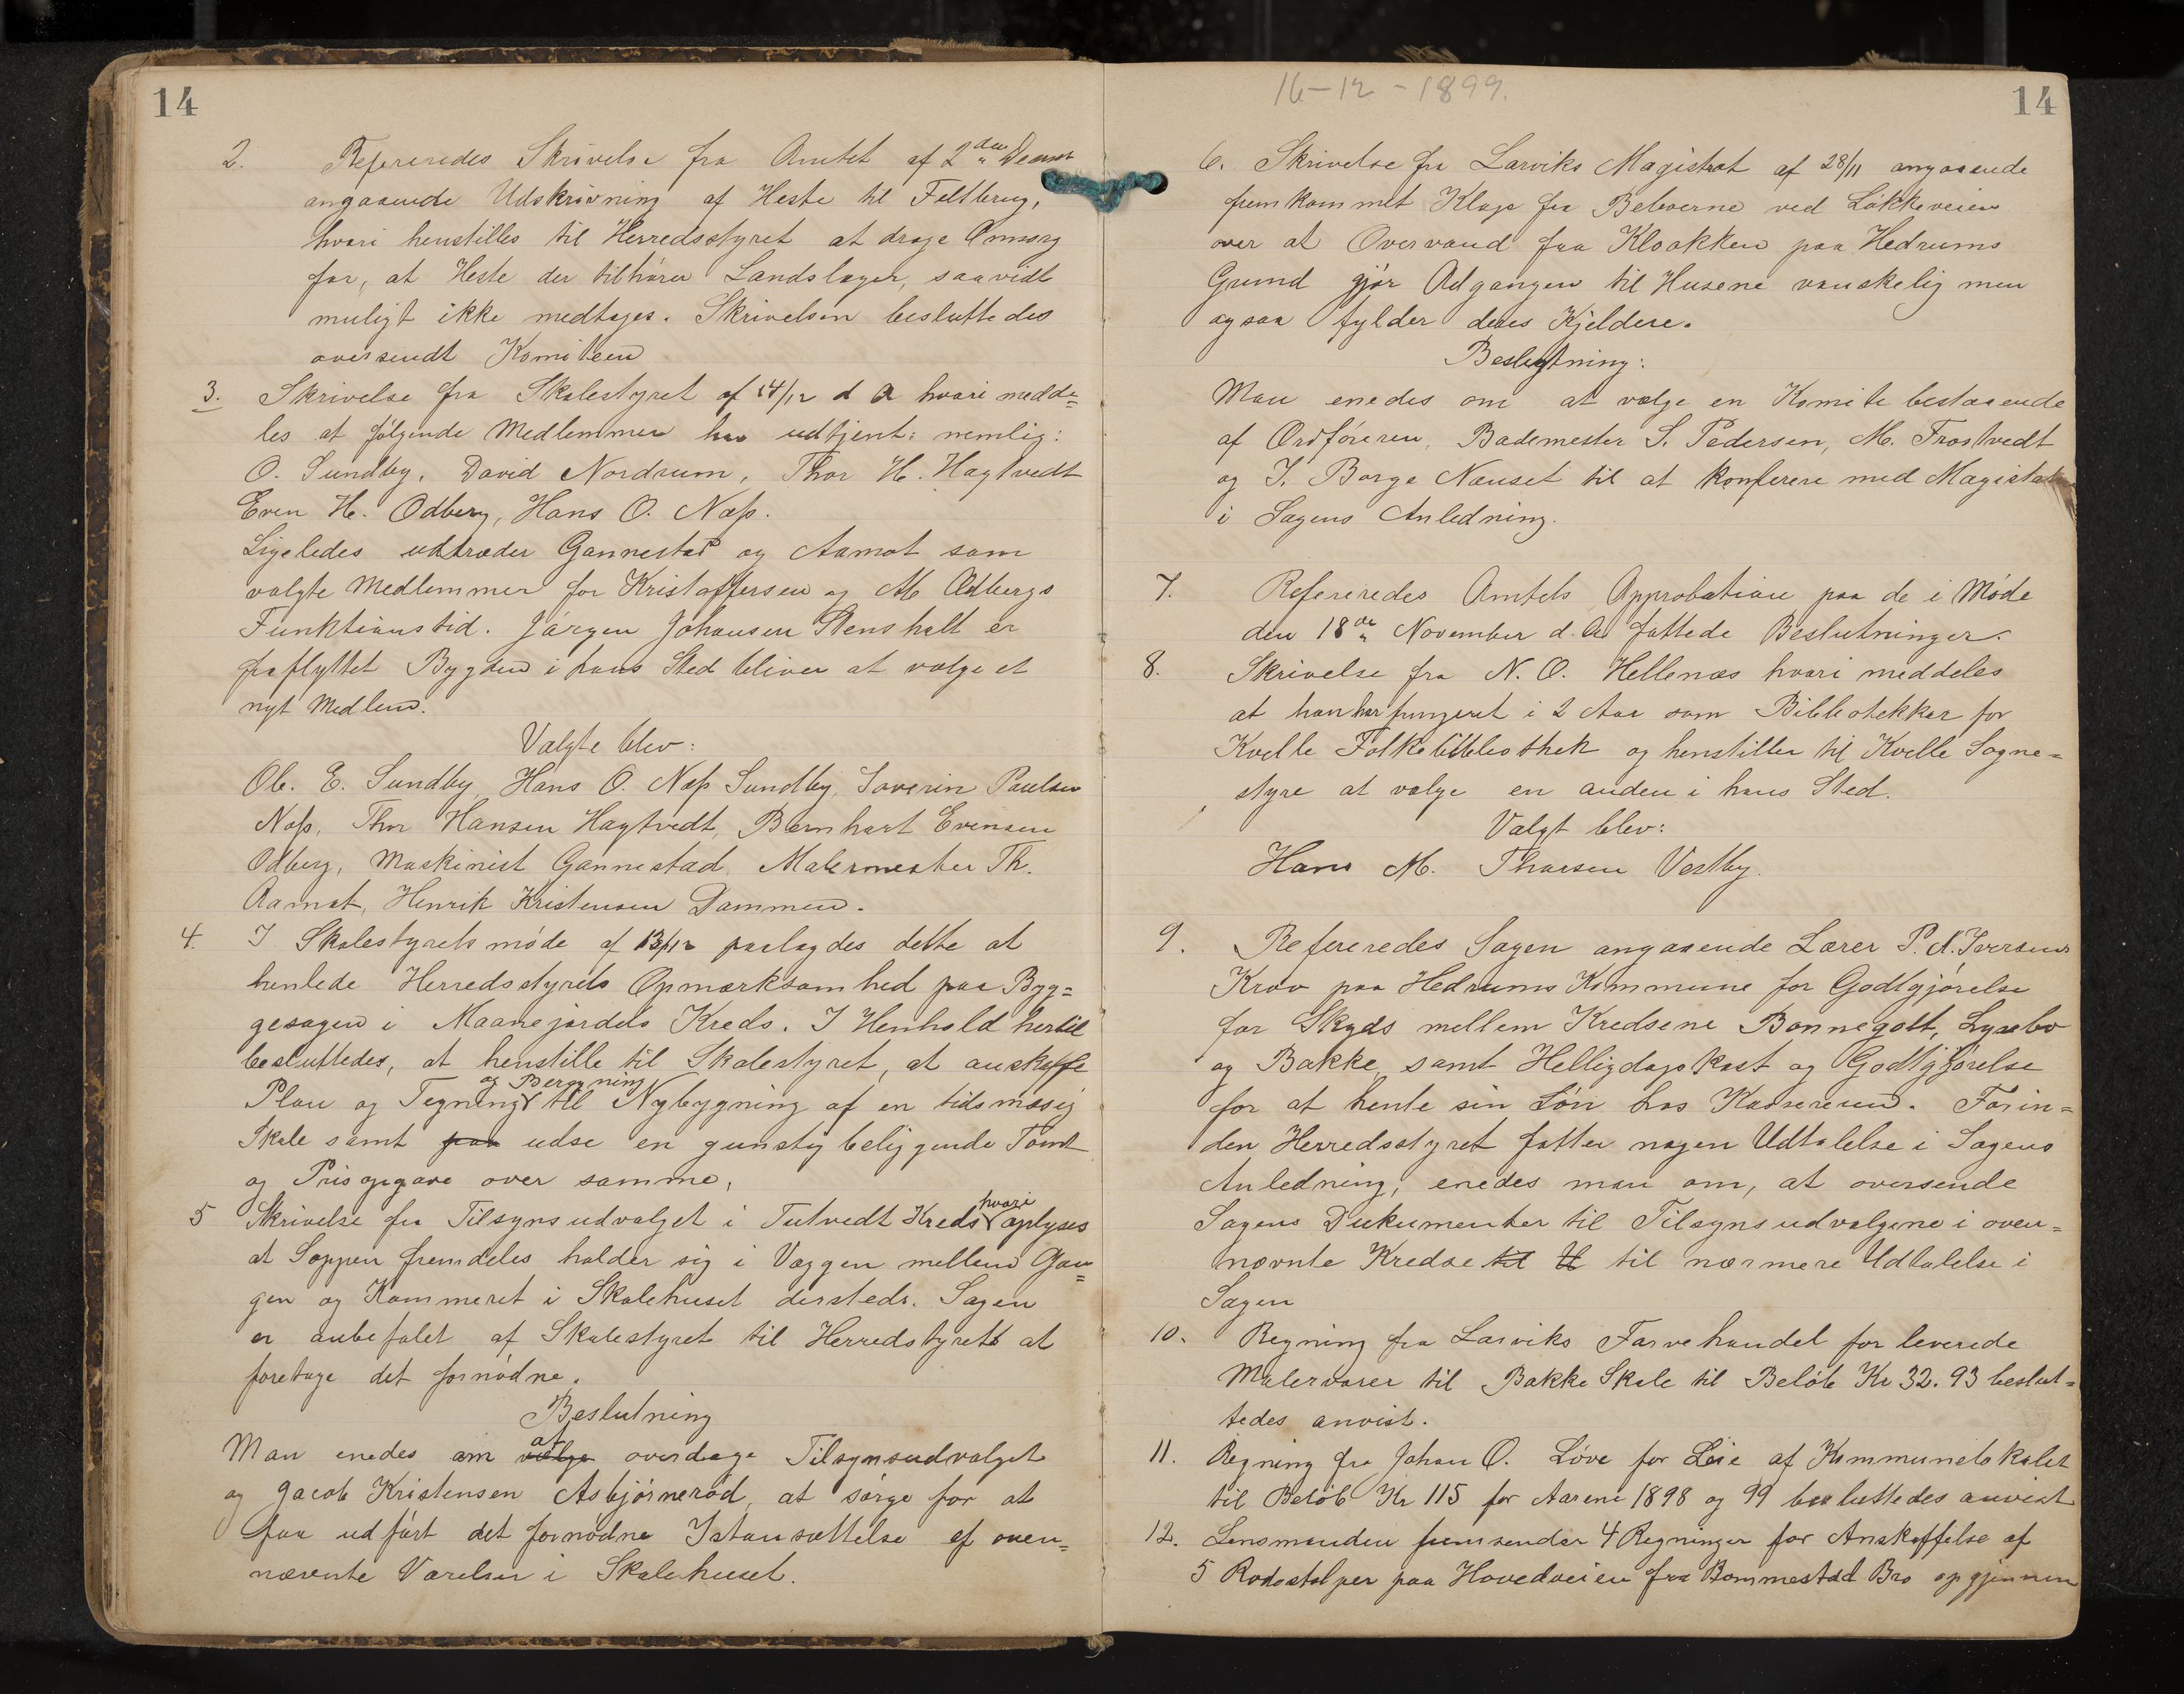 14
2. Refereredes Skrivelse fra Amtet af 2den
angaaende Udskrivning af Heste til Feltbrug,
hvori henstilles til Herredsstyret at drage Omsorg
for, at Heste der tilhører Landslæger, saavidt
muligt ikke medtages. Skrivelsen besluttedes
oversendt Komiteen
3. Skrivelse fra Skolestyret af 14/12 d A hvori medde=
les at følgende Medlemmer har udtjent: nemlig:
O. Sundby, David Nordrum, Thor H. Hagtvedt
Even H. Odberg, Hans O. Næss.
Ligeledes udtræder Gannestad og Aamot som
valgte Medlemmer for Kristoffersen og M Odbergs
Funktionstid. Jørgen Johansen Stensholt er
fraflyttet Bygden i hans Sted bliver at vælge et
nyt Medlem.
Valgte blev:
Ole E. Sundby, Hans O. Næss Sundby, Søverin Paulsen
Næss, Thor Hansen Hagtvedt, Bernhart Evensen
Odberg, Maskinist Gannestad, Malermester Th.
Aamot, Henrik Kristensen Dammen.
4. I Skolestyrets møde af 13/12 paalagdes dette at
henlede Herredsstyrets Opmærksomhed paa Byg=
gesagen i Maanejordets Kreds. I Henhold hertil
besluttedes, at henstille til Skolestyret, at anskaffe
Plan og Tegning og Beregning til Nybygning af en tidsmæsig
Skole samt paa udse en gunstig beliggende Tomt
og Prisopgave over samme,
5 Skrivelse fra Tilsynsudvalget i Tutvedt Kreds hvori oplyses
at Soppen fremdeles holder sig i Væggen mellem Gan=
gen og Kammeret i Skolehuset dersteds. Sagen
er anbefalet af Skolestyret til Herredstyrets at
foretage det fornødne.
Beslutning
Man enedes om vælge at overdrage Tilsynsudvalget
og Jacob Kristensen Asbjørnerød, at sørge for at
faa udført det fornødne Istansættelse af oven=
nævnte Værelser i Skolehuset.
16-12-1899.
14
6. Skrivelse fra Larviks Magistrat af 28/11 angaaende
fremkommet Klage fra Beboerne ved Løkkeveien
over at Overvand fra Kloakken paa Hedrums
Grund gjør Adgangen til Husene vanskelig men
ogsaa fylder deres Kjeldere.
Beslutning:
Man enedes om at vælge en Komite bestaaende
af Ordføreren, Bademester S. Pedersen, M. Frostvedt
og I. Borge Nanset til at konferere med Magistraten
i Sagens Anledning.
7. Refereredes Amtets Approbation paa de i Møde
den 18de November d. A fattede Beslutninger.
8. Skrivelse fra N. O. Hellenæs hvori meddeles
at han har fungeret i 2 Aar som Bibliotekkar for
Kvelle Folkebibliothek og henstiller til Kvelle Sogne=
styre at vælge en anden i hans Sted.
Valgt blev:
Hans M. Thorsen Vestby.
9. Refereredes Sagen angaaende Lærer P. N. Iversens
Krav paa Hedrums Kommune for Godtgjørelse
for Skyds mellem Kredsene Bonnegolt, Lysebo
og Bakke, samt Helligdagskost og Godtgjørelse
for at hente sin Løn hos Kassereren. Forin=
den Herredsstyret fatter nogen Udtalelse i Sagens
Anledning, enedes man om, at oversende
Sagens Dukumenter til Tilsynsudvalgene i oven=
nævnte Kredse til U til nærmere Udtalelse i
Sagen
10. Regning fra Larviks Farvehandel for leverede
Malervarer til Bakke Skole til Beløb Kr 32.93 beslut=
tedes anvist.
11. Regning fra Johan O. Løve for Leie af Kommunelokalet
til Beløb Kr 115 for Aarene 1898 og 99 besluttedes anvist
12. Lensmanden fremsender 4 Regninger for Anskaffelse af
5 Rodestolper paa Hovedveien fra Bommestad Bro op gjennem